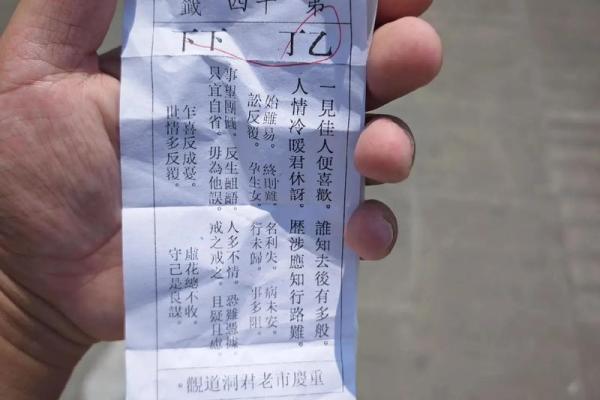 第十四籤
乙丁
下下
一見佳人便喜歡。誰知去後有多般。
人情冷暖君休訝。歷涉應知行路難。
始雖易。終則難。名利失。病未安。
訟反覆。孕生女。行未歸。事多阻。
事望團圓。反生齟齬。人多不情。恐難憑據。
只宜自省。毋為他誤。戒之戒之。且疑且慮。
乍喜反成憂。虛花總不收。
世情多反覆。守己是良謀。
重慶市老君洞道觀。